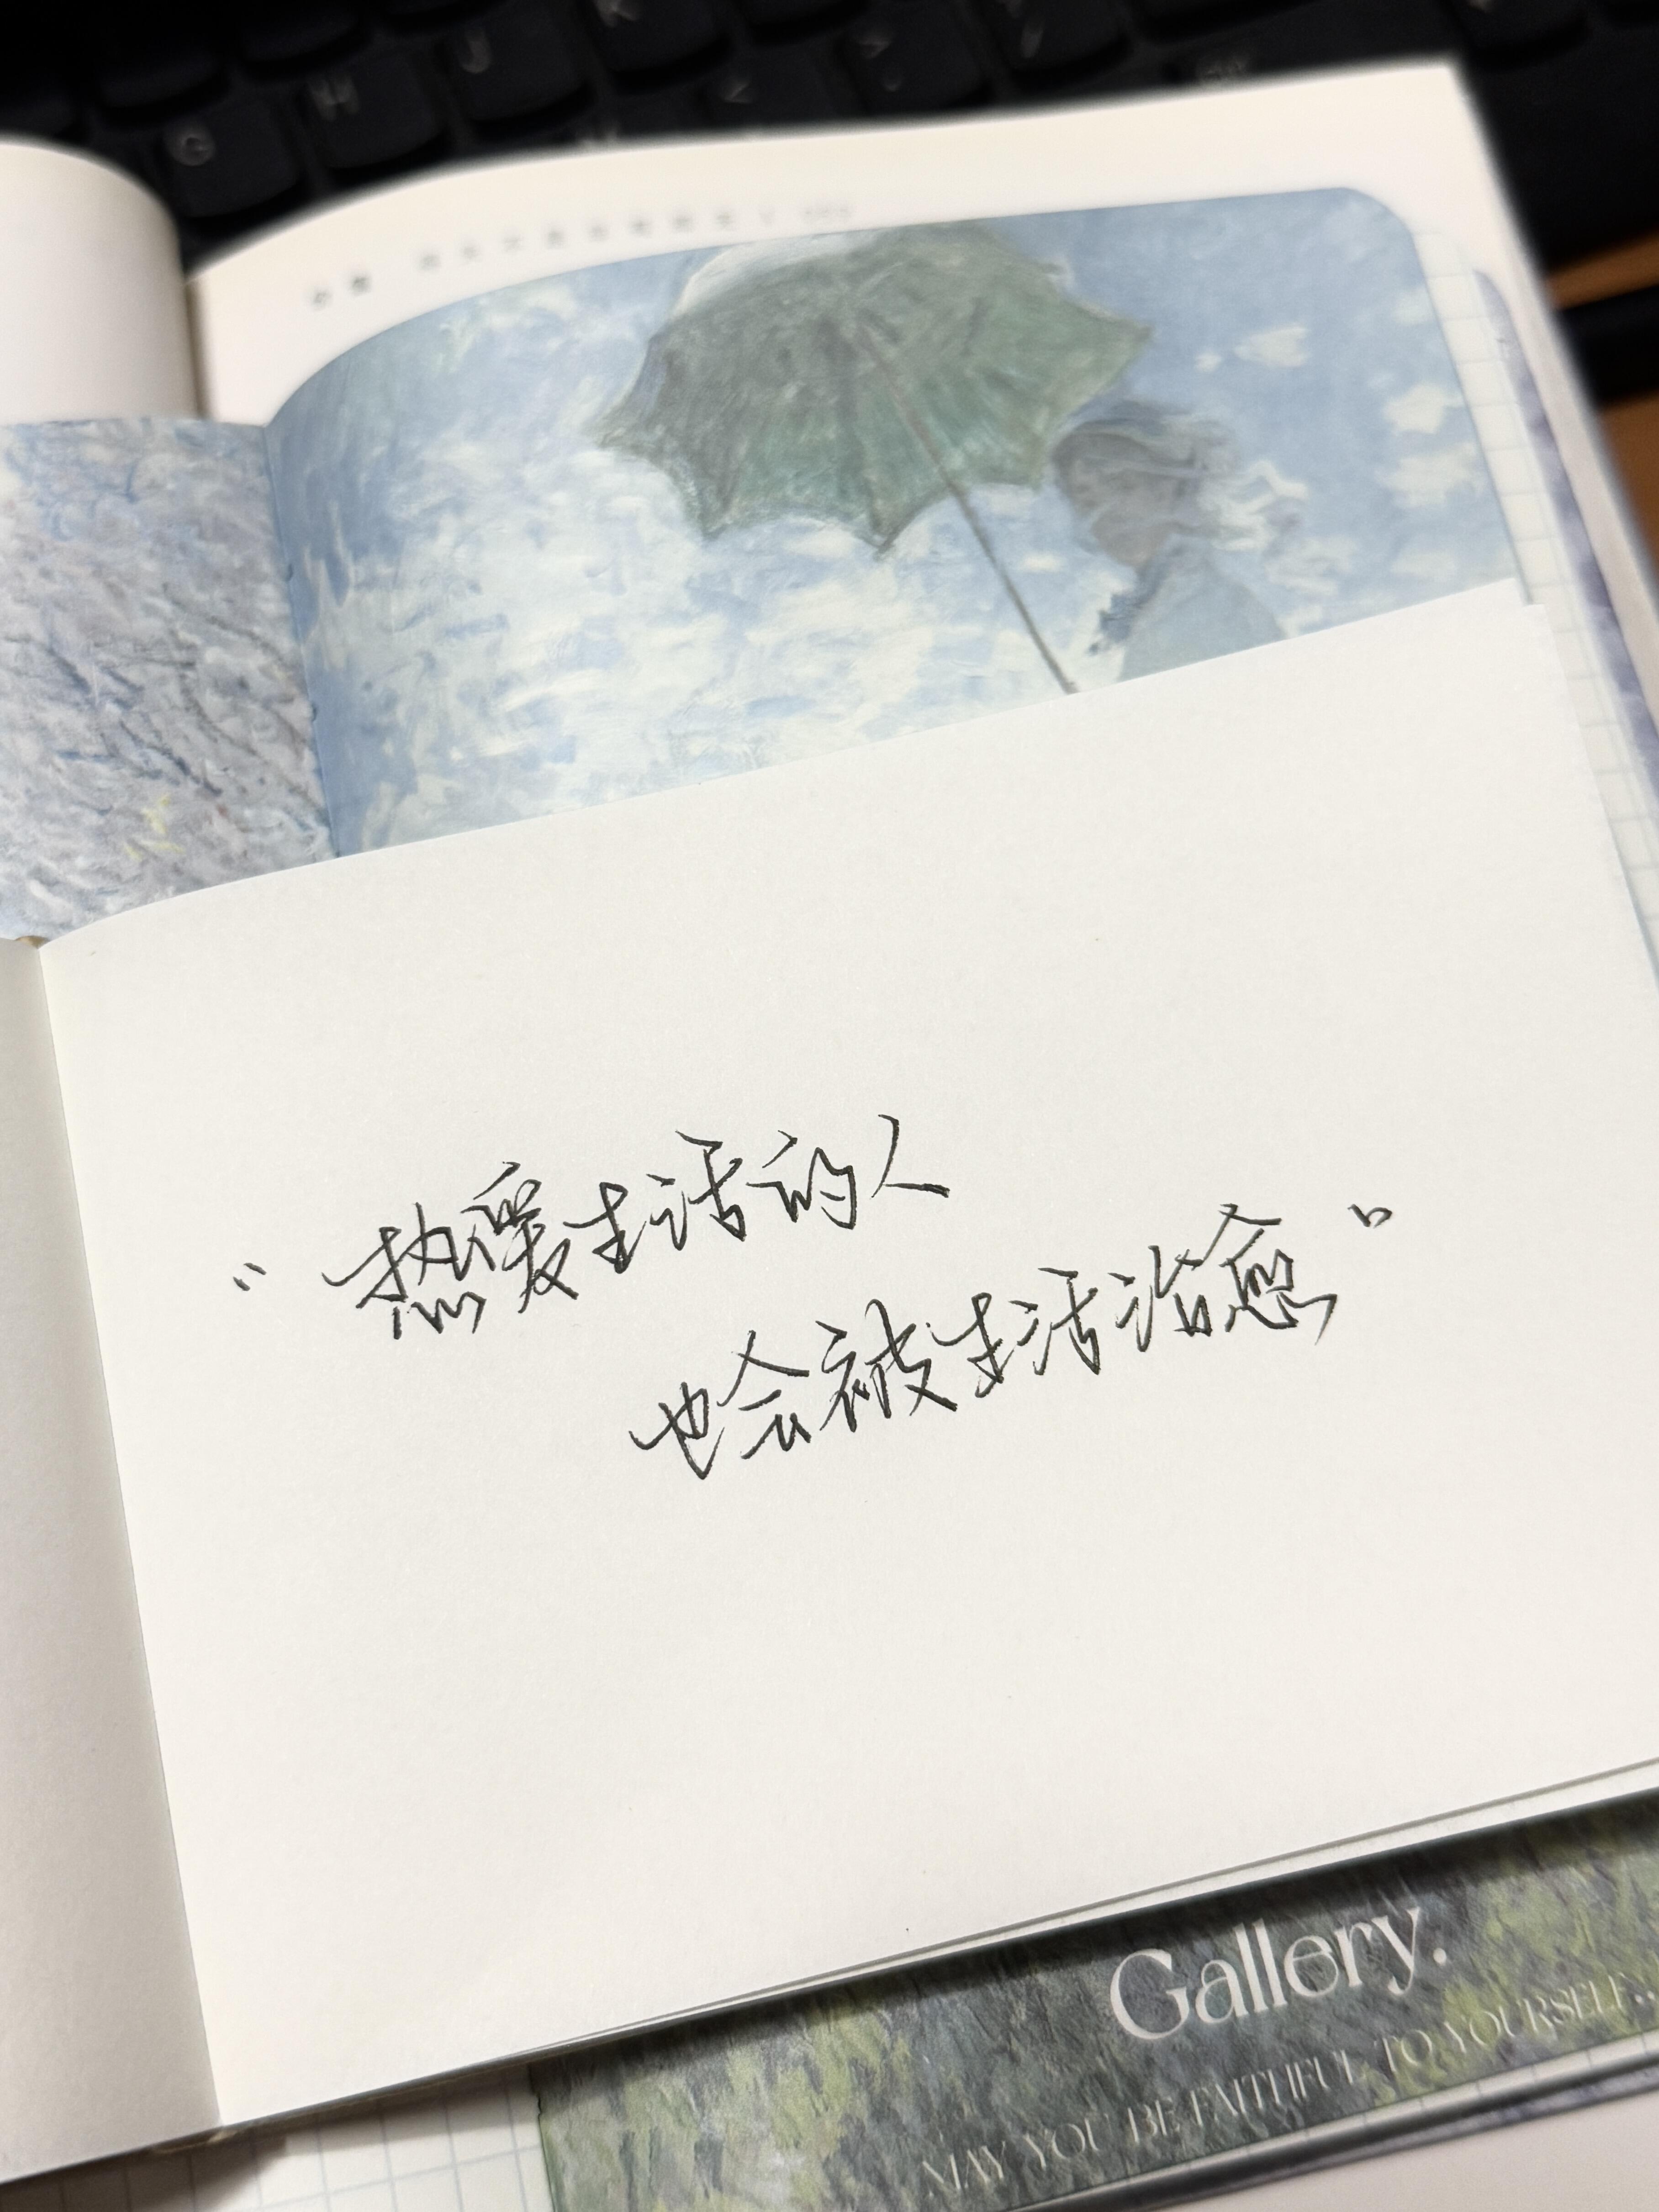 G
H
J
K
V
“热爱生活的人
也会被生活治愈”
Gallery.
MAY YOU BE FAITHFUL TO YOURSELF..